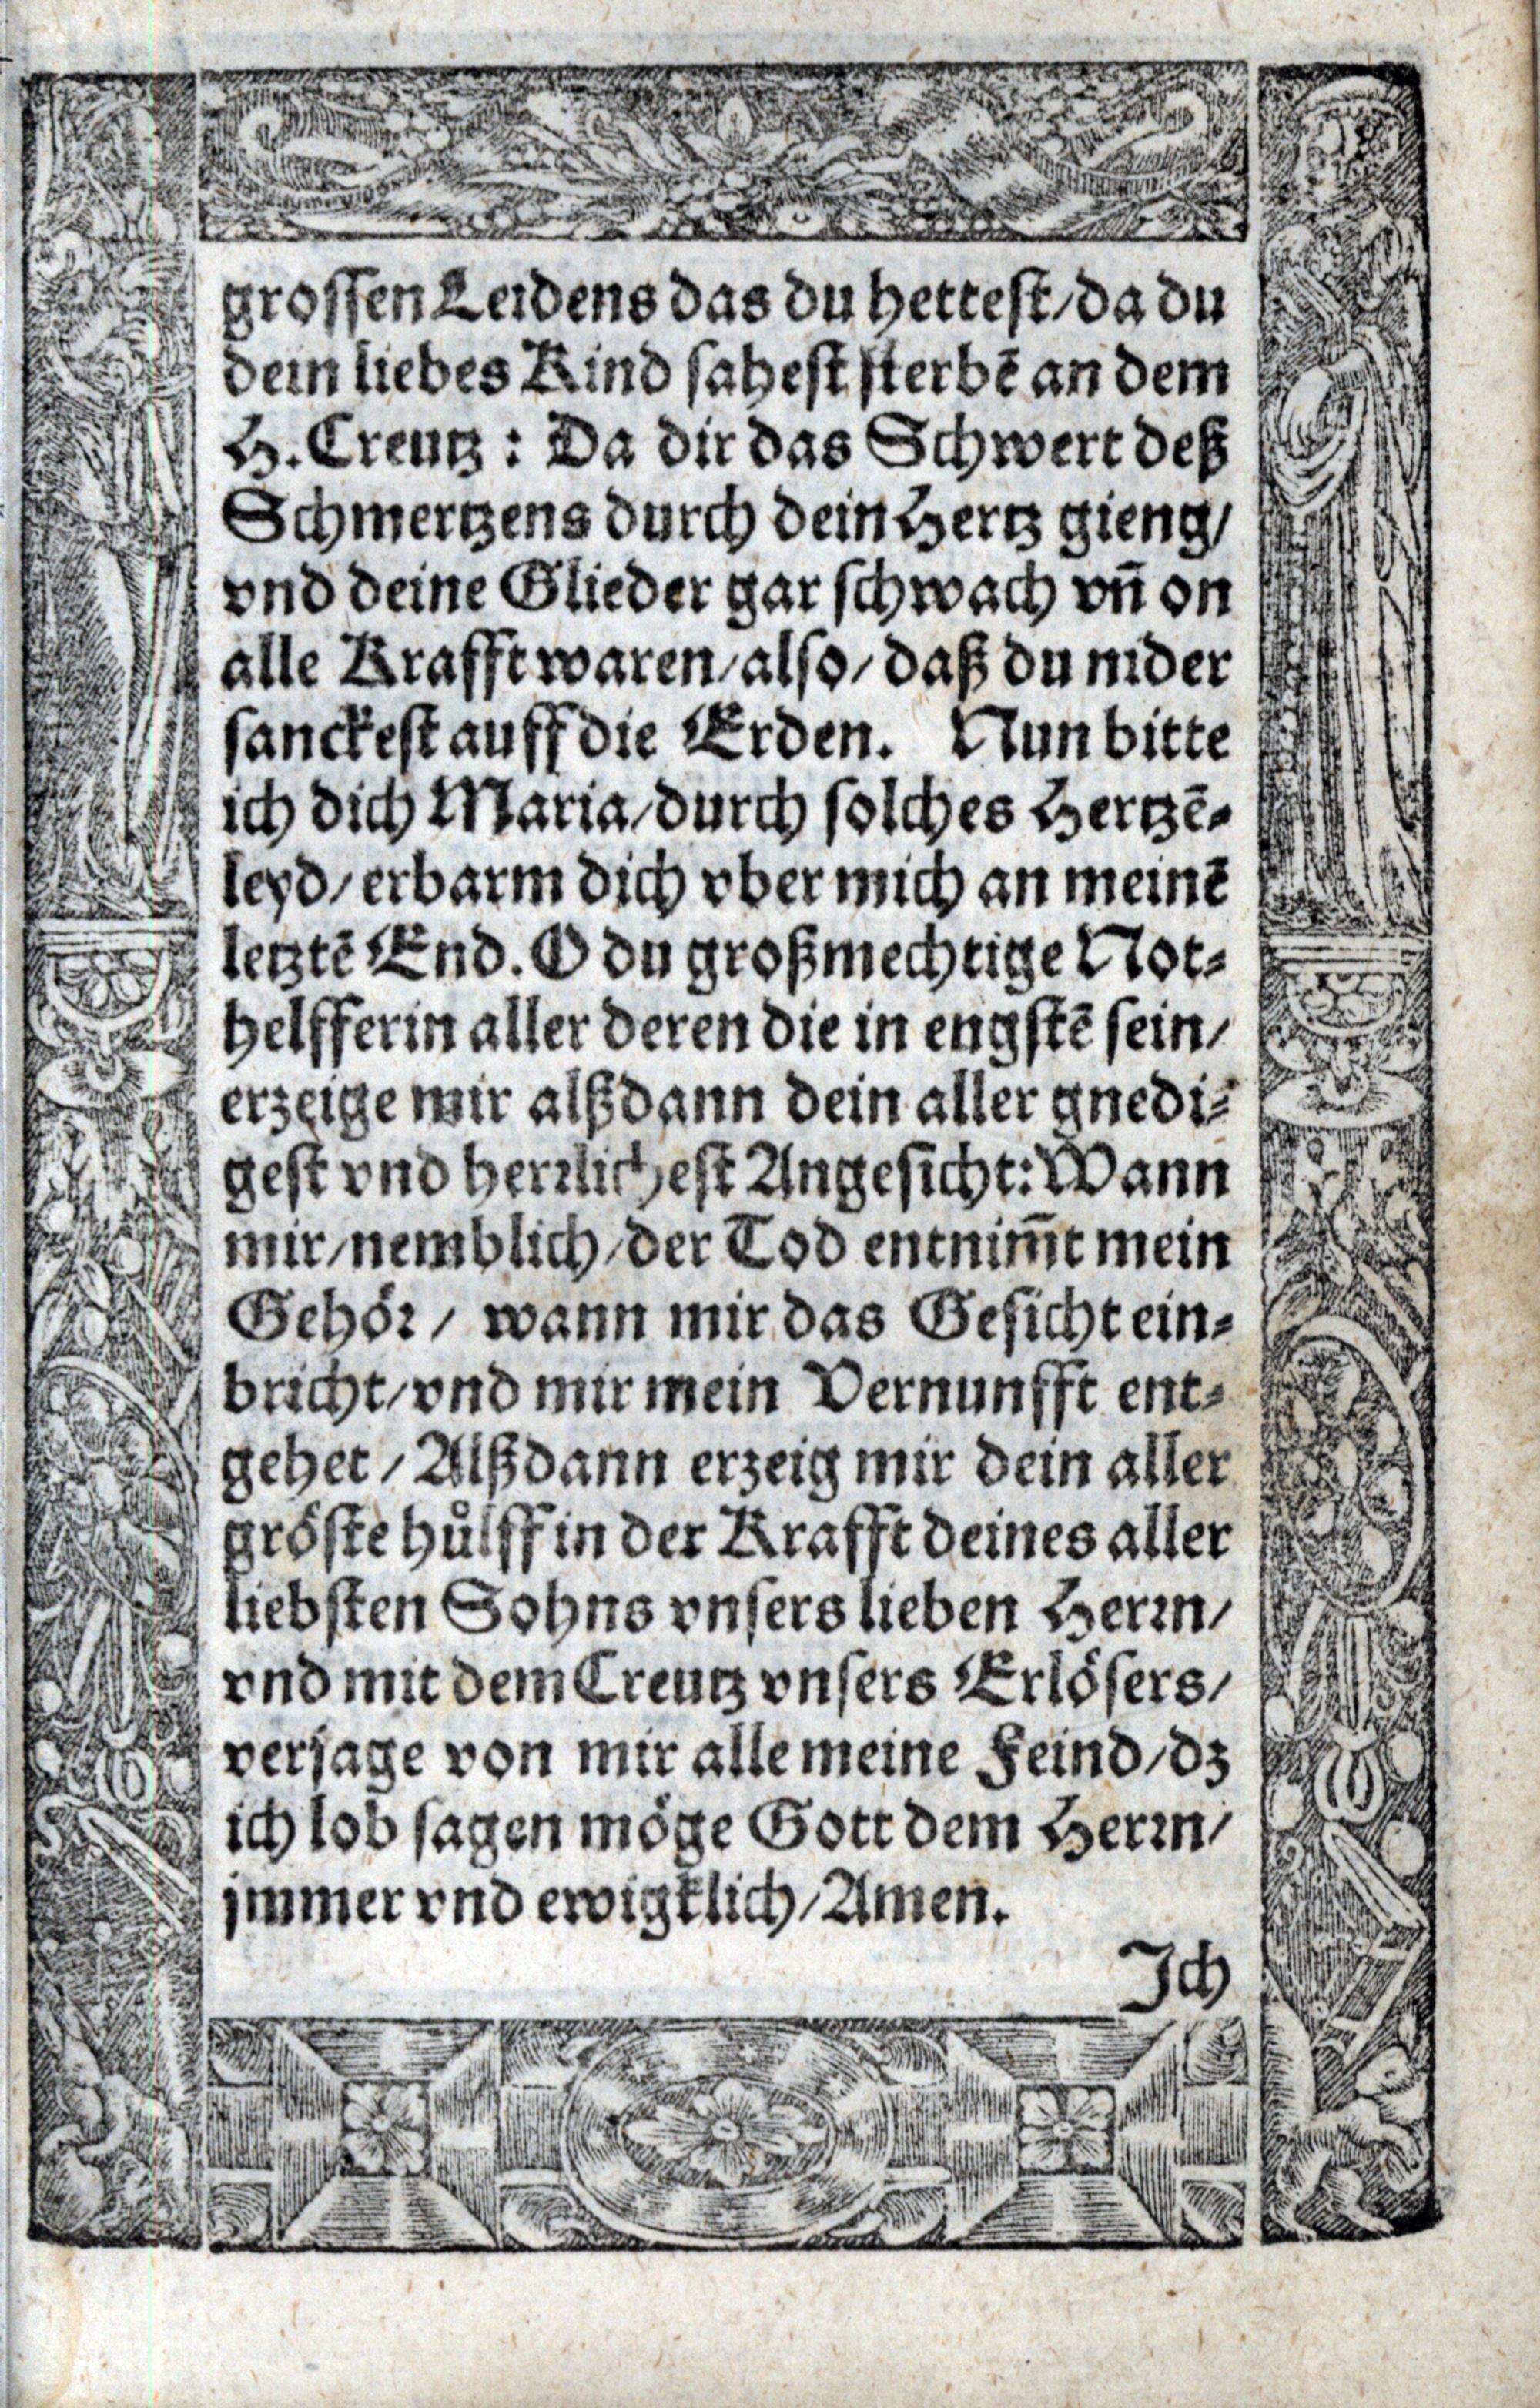 grossen Leidens das du hettest/da du
dein liebes Kind sahest sterbē an dem
H. Creutz : Da dir das Schwert deß
Schmertzens durch dein Hertz gieng/
vnd deine Glieder gar schwach vn̄ on
alle Krafft waren/also/daß du nider
sanckest auff die Erden. Nun bitte
ich dich Maria/durch solches Hertzē-
leyd/erbarm dich vber mich an meinē
letztē End. O du großmechtige Not-
helfferin aller deren die in engstē sein/
erzeige mir alßdann dein aller gnedi-
gest vnd herꝛlichest Angesicht: Wann
mir/nemblich/der Tod entnim̄t mein
Gehoͤꝛ / wann mir das Gesicht ein-
bricht/vnd mir mein Vernunfft ent-
gehet / Alßdann erzeig mir dein aller
groͤste huͦlff in der Krafft deines aller
liebsten Sohns vnsers lieben Herꝛn/
vnd mit dem Creutz vnsers Erloͤsers/
verjage von mir alle meine Feind/dz
ich lob sagen moͤge Gott dem Herꝛn/
jmmer vnd ewigklich/Amen.
Jch